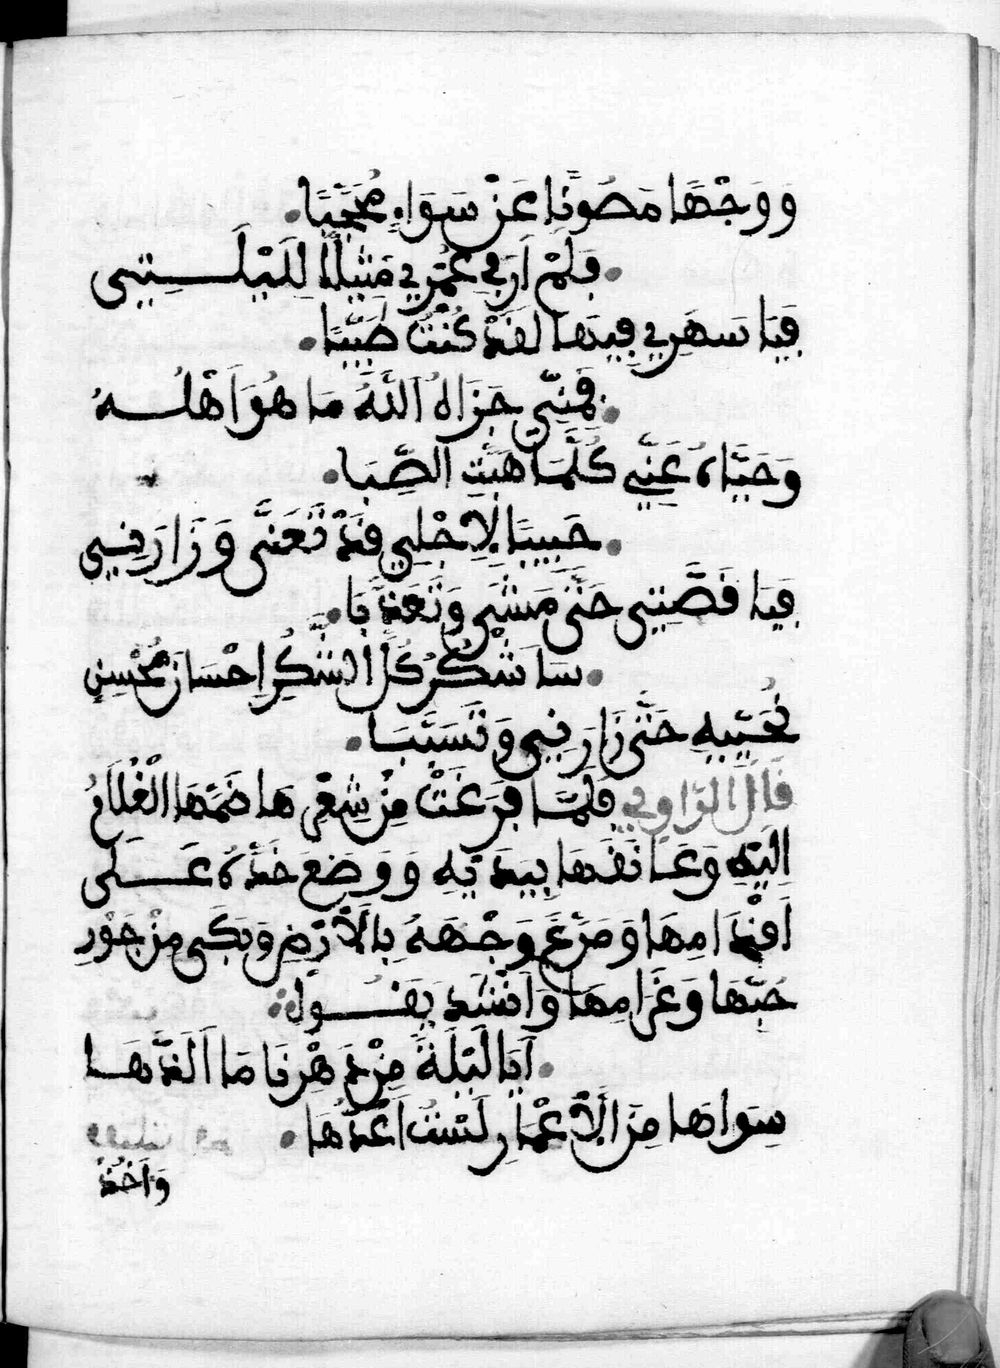 وَوَجْهًا مَصُونًا عَنْ سَوَاءٍ مُحَجَّبًا
فَلَمْ اَرَ فِي عُمْرِي مَثِيلًا لِلَيْلَـــتِي
فَيَا سَهَرِي فِيهَا لَقَدْ كُنْتَ طَيِّبًا
فَمِنِّي جَزَاهُ اللَّهُ مَا هُوَ اَهْلُـــهُ
وَحَيَّاهُ عَنِّي كُلَّمَا هَبَّتِ الصَّبَا
حَبِيبًا لِاَجْلِي قَدْ تَعَنَّى وَزَارَنِي
فَيَا قِصَّتِي حَتَّى مَشَى وَتَعَذَّبَا
سَاَشْكُرُ كُلَّ الشُّكْرِ اِحْسَانَ مُحْسِنٍ
تَحَيَّلَ حَتَّى زَارَنِي وَتَسَبَّبَا
قَالَ الرَّاوِي فَلَمَّا فَرَغَتْ مِنْ شِعْرِهَا ضَمَّهَا الْغُلَامُ
اِلَيْهِ وَعَانَقَهَا بِيَدَيْهِ وَوَضَعَ خَدَّهُ عَـــلَى
اَقْدَامِهَا وَمَرَّغَ وَجْهَهُ بِالْاَرْضِ وَبَكَى مِنْ جَوْرِ
حُبِّهَا وَغَرَامِهَا وَاَنْشَدَ يَقُـــولُ
اَيَا لَيْلَةً مِنْ دَهْرِنَا مَا اَلَذَّهَـــا
سِوَاهَا مِنَ الْاَعْمَارِ لَسْتُ اَعُدُّهَا
وَاَخَذَ